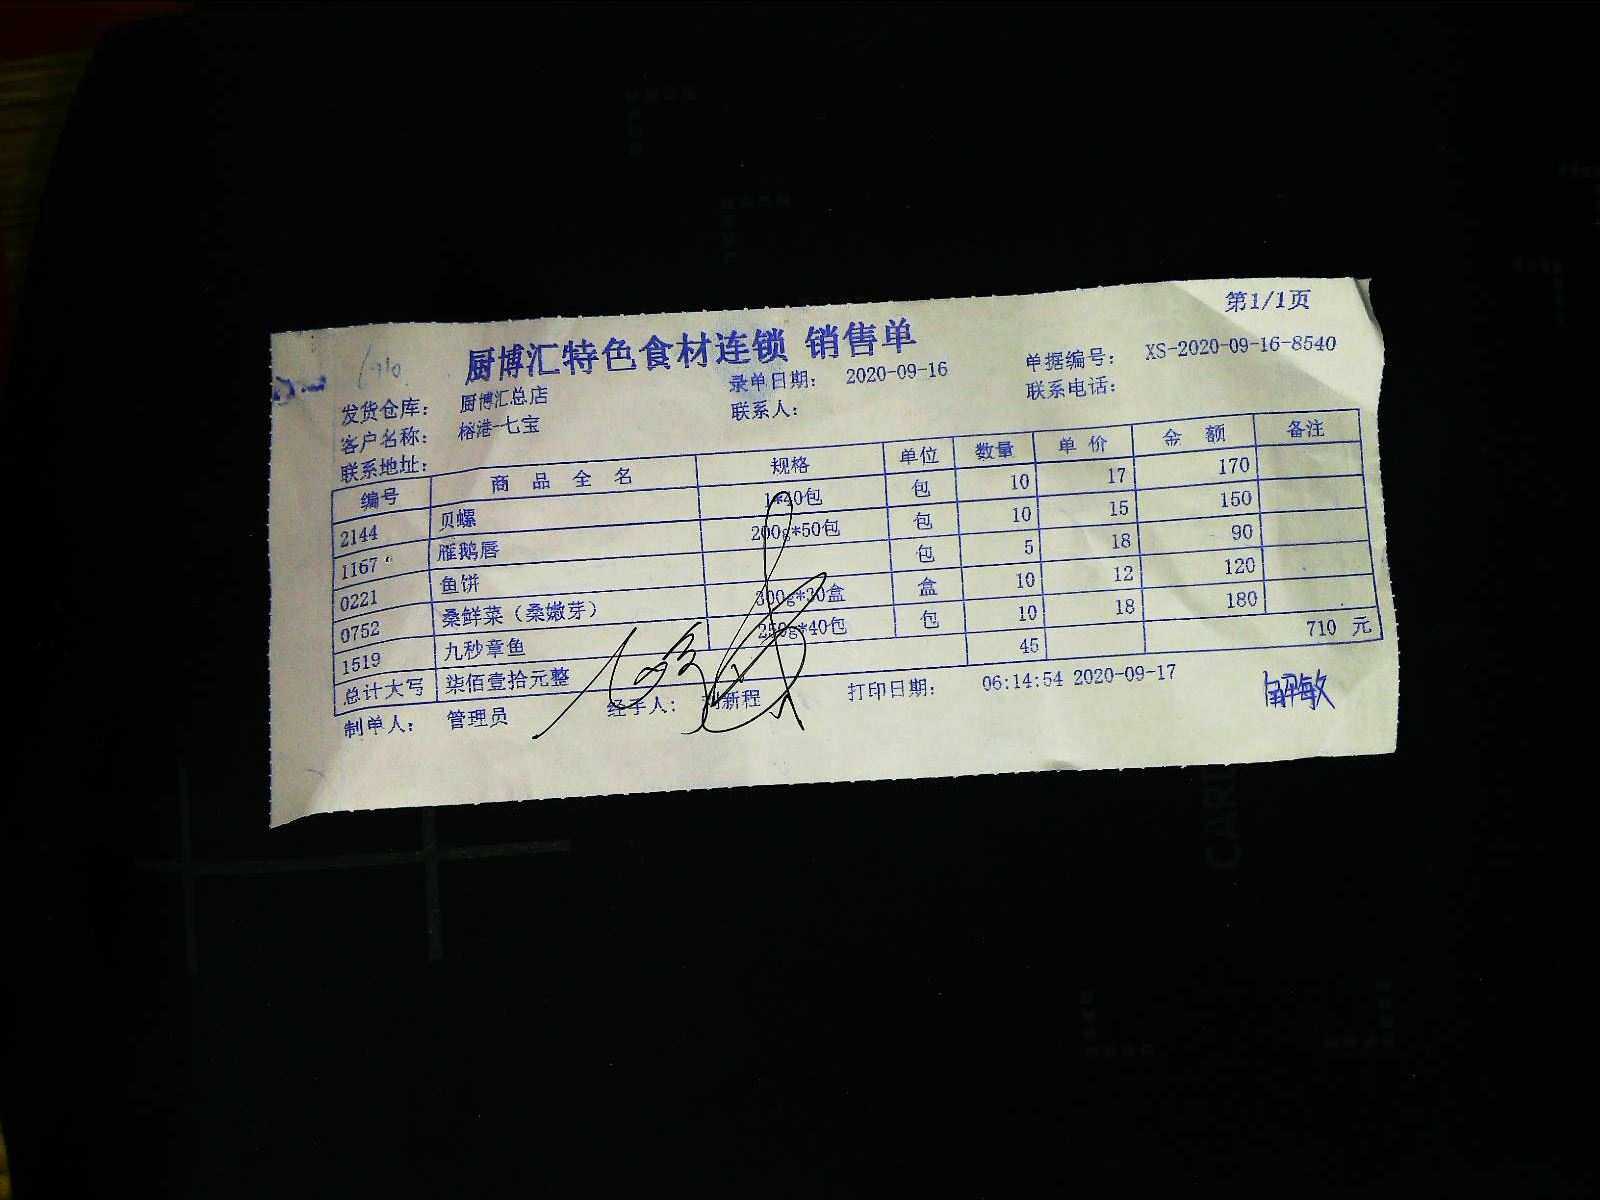 第1/1页
厨博汇特色食材连锁 销售单
发货仓库: 厨博汇总店 录单日期: 2020-09-16 单据编号: XS-2020-09-16-8540
客户名称: 榕港-七宝 联系人: 联系电话:
联系地址:
编号 商品全名 规格 单位 数量 单价 金额 备注
2144 贝螺 1*40包 包 10 17 170
1167 雁鹅唇 200g*50包 包 10 15 150
0221 鱼饼 包 5 18 90
0752 桑鲜菜（桑嫩芽） 300g*30盒 盒 10 12 120
1519 九秒章鱼 250g*40包 包 10 18 180
总计大写 柒佰壹拾元整 45 710 元
制单人: 管理员 经手人: 新程 打印日期: 06:14:54 2020-09-17